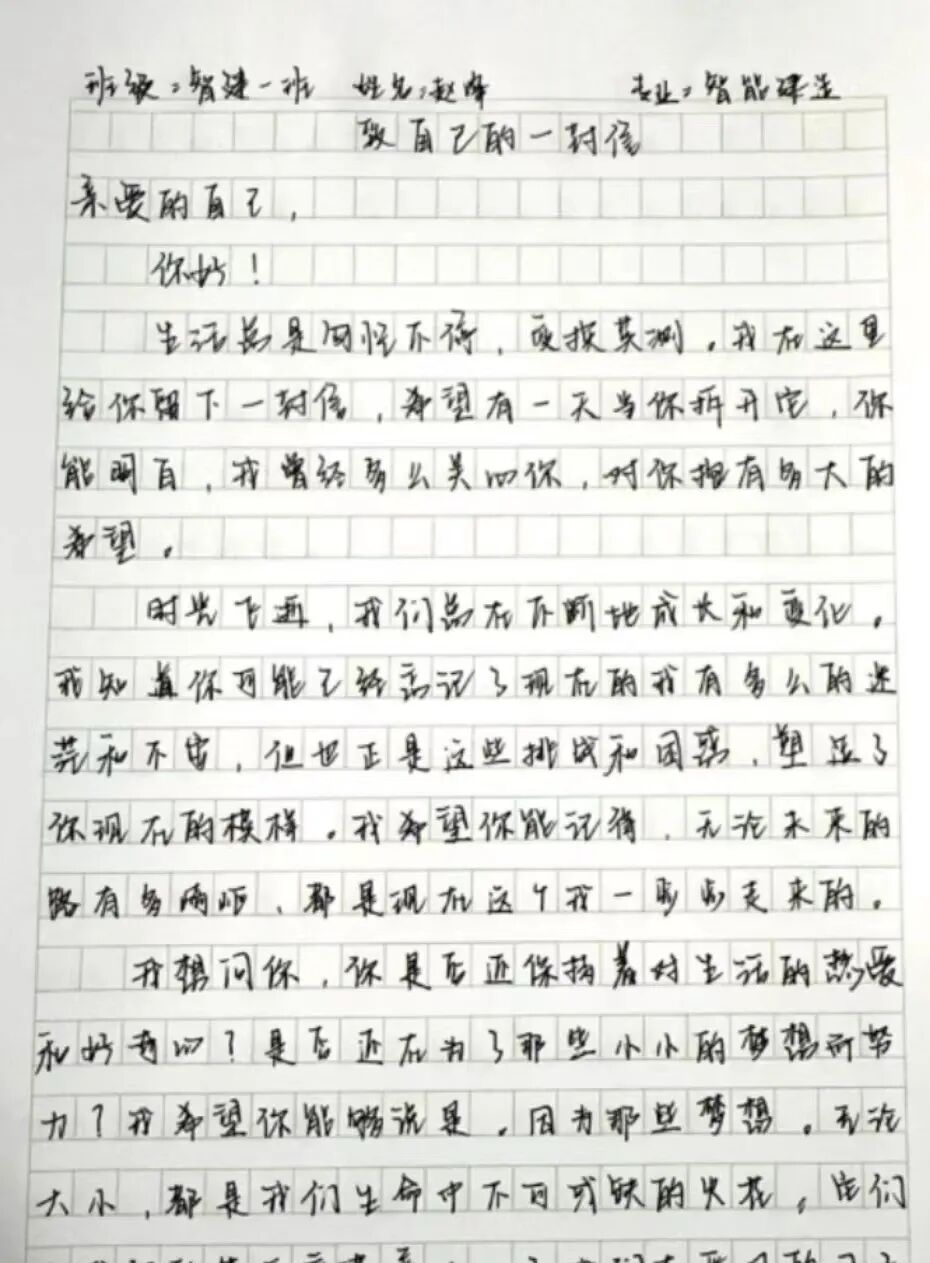 班级：智建一班 姓名：赵峰 专业：智能建造
致自己的一封信
亲爱的自己，
你好！
生活总是阴晴不倚，变换莫测。我在这里
给你留下一封信，希望有一天当你拆开它，你
能明白，我曾经多么关心你，对你抱有多大的
希望。
时光飞逝，我们总在不断地成长和变化。
我知道你可能已经忘记了现在的我有多么的迷
茫和不安，但也正是这些挑战和困惑，塑造了
你现在的模样。我希望你能记得，无论未来的
路有多崎岖，都是现在这个我一步步走来的。
我想问你，你是否还保持着对生活的热爱
和好奇心？是否还在为了那些小小的梦想而努
力？我希望你能够说是。因为那些梦想。无论
大小，都是我们生命中不可或缺的火花。它们